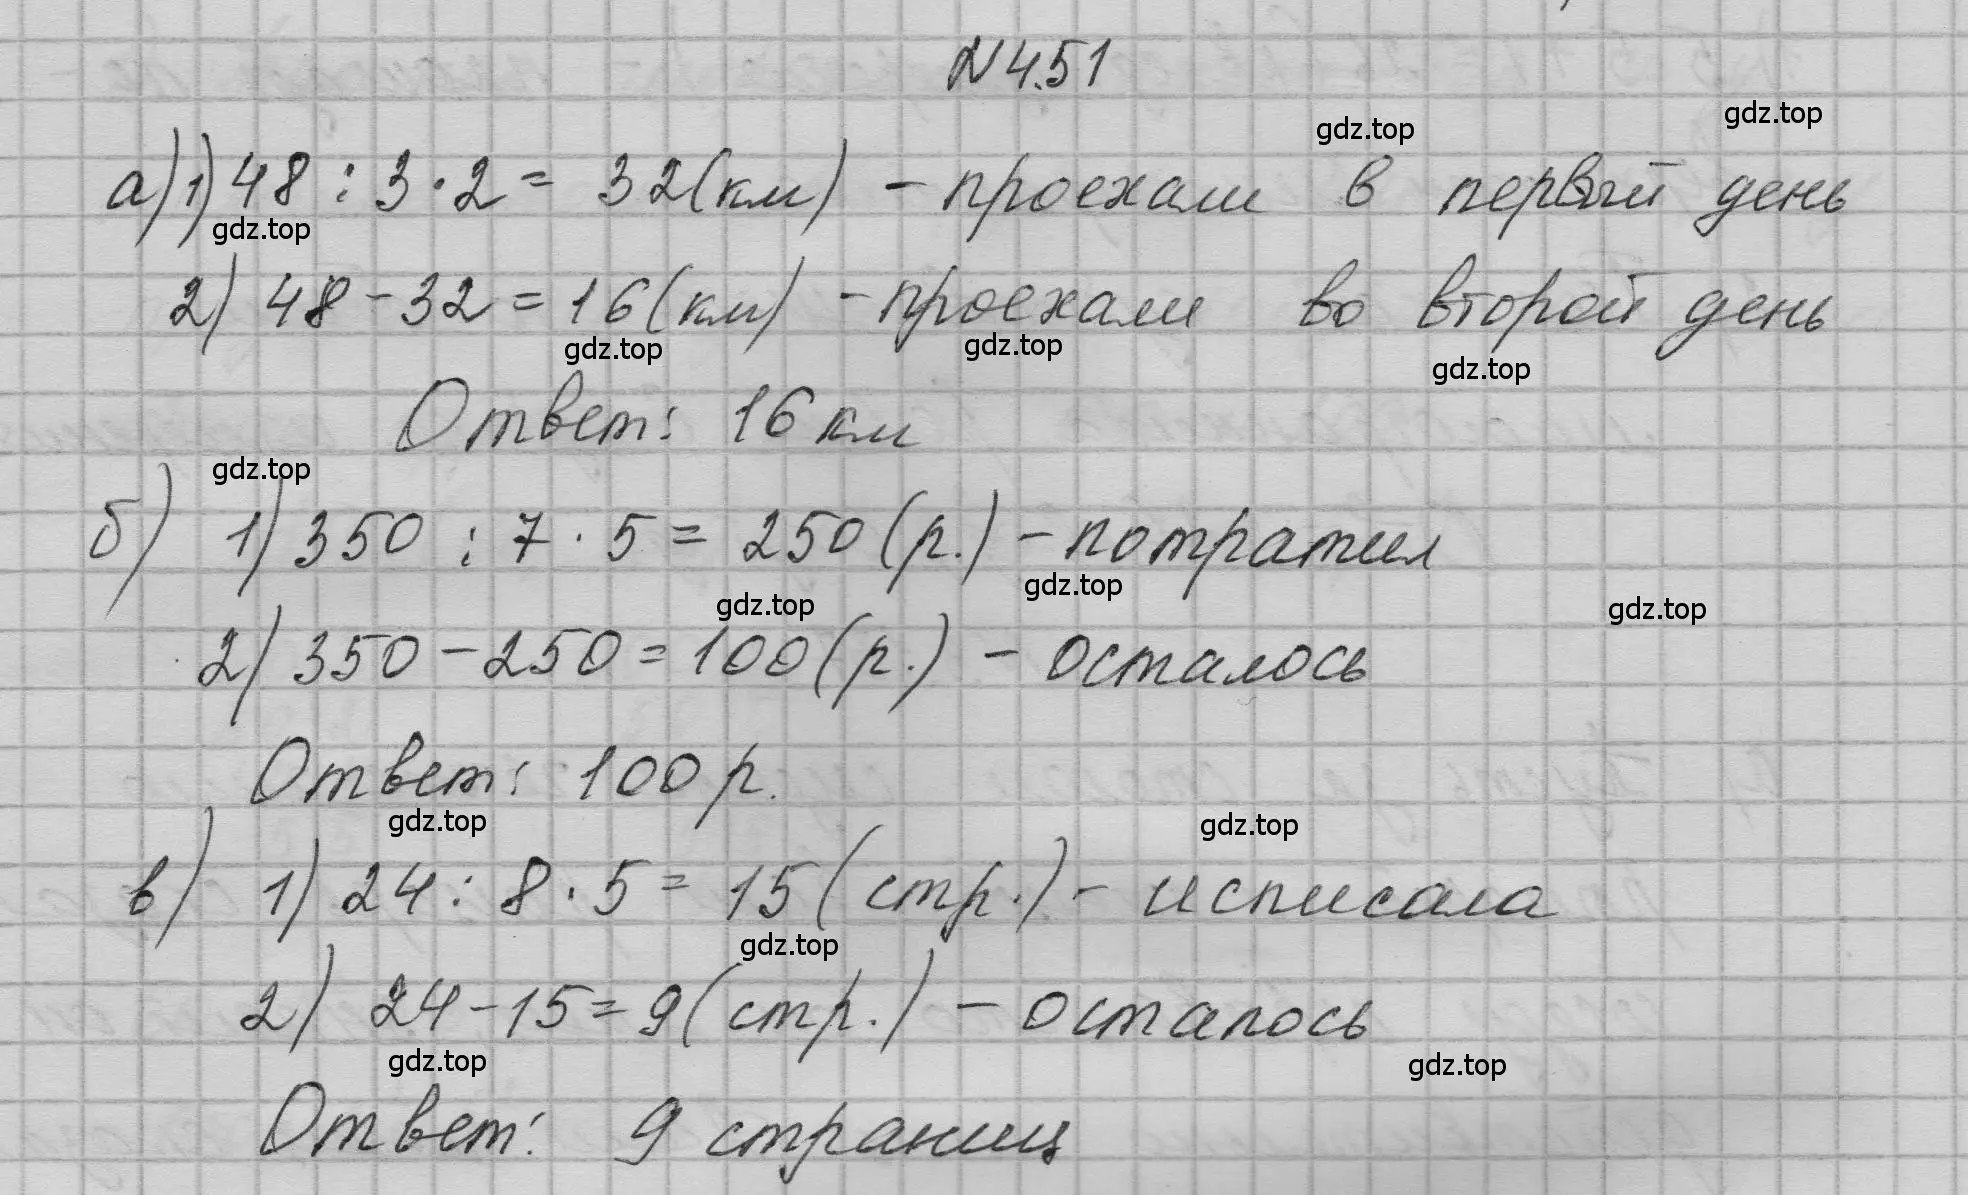 № 4.51
gdz.top
gdz.top
а) 1) 48 : 3 · 2 = 32 (км) - проехали в первый день
gdz.top
2) 48 - 32 = 16 (км) - проехали во второй день
gdz.top
gdz.top
gdz.top
Ответ: 16 км
gdz.top
б) 1) 350 : 7 · 5 = 250 (р.) - потратил
gdz.top
gdz.top
gdz.top
2) 350 - 250 = 100 (р.) - осталось
Ответ: 100 р.
gdz.top
gdz.top
в) 1) 24 : 8 · 5 = 15 (стр.) - исписала
gdz.top
2) 24 - 15 = 9 (стр.) - осталось
gdz.top
gdz.top
Ответ: 9 страниц